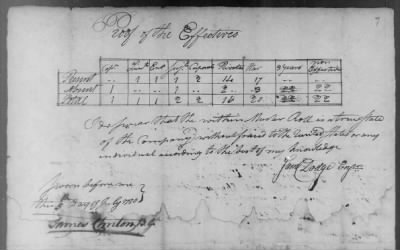 7
Proof of the Effectives
Capt Lieut Ens Serjt Corporals Privates War 3 Years non Effectives
Present .. 1 1 1 2 14 17
Absent 1 .. .. 1 .. 2 3 22 22
Total 1 1 1 2 2 16 20 22 22
I do swear that the within Muster Roll is a true state
of the Company, without fraud to the United States or any
individual according to the best of my knowledge
Saml Dodge Capt
Sworn before me
this Day of July
James Clinton B.G.